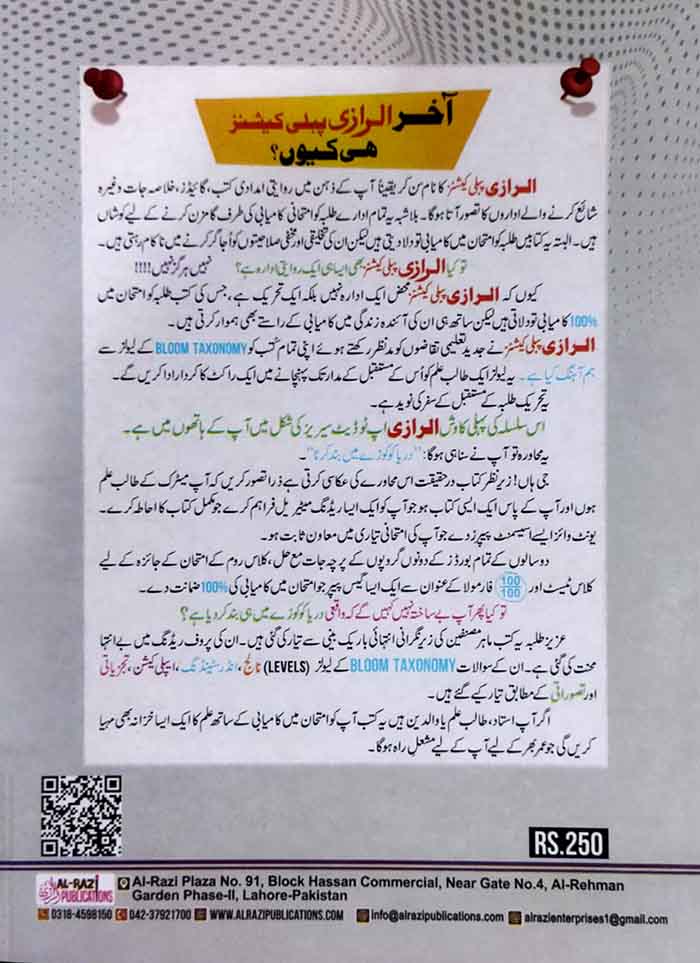 آخر الرازی پبلی کیشنز
ہی کیوں؟
الرازی پبلی کیشنز کا نام سن کر یقیناً آپ کے ذہن میں روایتی امدادی کتب، گائیڈز، خلاصہ جات وغیرہ
شائع کرنے والے اداروں کا تصور آتا ہوگا۔ بلاشبہ یہ تمام ادارے طلبہ کو امتحانی کامیابی کی طرف گامزن کرنے کے لیے کوشاں
ہیں۔ البتہ یہ کتابیں طلبہ کو امتحان میں کامیابی تو دلا دیتی ہیں لیکن ان کی تخلیقی اور مخفی صلاحیتوں کو اُجاگر کرنے میں ناکام رہتی ہیں۔
تو کیا الرازی پبلی کیشنز بھی ایسا ہی ایک روایتی ادارہ ہے؟ نہیں ہرگز نہیں!!!!
کیوں کہ الرازی پبلی کیشنز محض ایک ادارہ نہیں بلکہ ایک تحریک ہے، جس کی کتب طلبہ کو امتحان میں
100% کامیابی تو دلاتی ہیں لیکن ساتھ ہی ان کی آئندہ زندگی میں کامیابی کے راستے بھی ہموار کرتی ہیں۔
الرازی پبلی کیشنز نے جدید تعلیمی تقاضوں کو مدنظر رکھتے ہوئے اپنی تمام کُتب کو BLOOM TAXONOMY کے لیولز سے
ہم آہنگ کیا ہے۔ یہ لیولز ایک طالب علم کو اُس کے مستقبل کے مدار تک پہنچانے میں ایک راکٹ کا کردار ادا کریں گے۔
یہ تحریک طلبہ کے مستقبل کے سفر کی نوید ہے۔
اس سلسلہ کی پہلی کاوش الرازی اپ ٹو ڈیٹ سیریز کی شکل میں آپ کے ہاتھوں میں ہے۔
یہ محاورہ تو آپ نے سنا ہی ہوگا: "دریا کو کوزے میں بند کرنا"۔
جی ہاں! زیر نظر کتاب در حقیقت اس محاورے کی عکاسی کرتی ہے ذرا تصور کریں کہ آپ میٹرک کے طالب علم
ہوں اور آپ کے پاس ایک ایسی کتاب ہو جو آپ کو ایک ایسا ریڈنگ میٹیریل فراہم کرے جو مکمل کتاب کا احاطہ کرے۔
یونٹ وائز ایسے اسیسمنٹ پیپرز دے جو آپ کی امتحانی تیاری میں معاون ثابت ہو۔
دو سالوں کے تمام بورڈز کے دونوں گروپوں کے پرچہ جات مع حل، کلاس روم کے امتحان کے جائزہ کے لیے
کلاس ٹیسٹ اور 100/100 فارمولا کے عنوان سے ایک ایسا گیس پیپر جو امتحان میں کامیابی کی 100% ضمانت دے۔
تو کیا پھر آپ بے ساختہ نہیں کہیں گے کہ واقعی دریا کو کوزے میں ہی بند کر دیا ہے؟
عزیز طلبہ یہ کتب ماہر مصنفین کی زیر نگرانی انتہائی باریک بینی سے تیار کی گئی ہیں۔ ان کی پروف ریڈنگ میں بے انتہا
محنت کی گئی ہے۔ ان کے سوالات BLOOM TAXONOMY کے لیولز (LEVELS) نالج، انڈرسٹینڈنگ، ایپلی کیشن، تجزیاتی
اور تصوراتی کے مطابق تیار کیے گئے ہیں۔
اگر آپ استاد، طالب علم یا والدین ہیں یہ کتب آپ کو امتحان میں کامیابی کے ساتھ علم کا ایک ایسا خزانہ بھی مہیا
کریں گی جو عمر بھر کے لیے آپ کے لیے مشعلِ راہ ہوگا۔
RS.250
AL-RAZI
PUBLICATIONS
Al-Razi Plaza No. 91, Block Hassan Commercial, Near Gate No.4, Al-Rehman
Garden Phase-II, Lahore-Pakistan
0318-4598150 042-37921700 WWW.ALRAZIPUBLICATIONS.COM info@alrazipublications.com alrazienterprises1@gmail.com